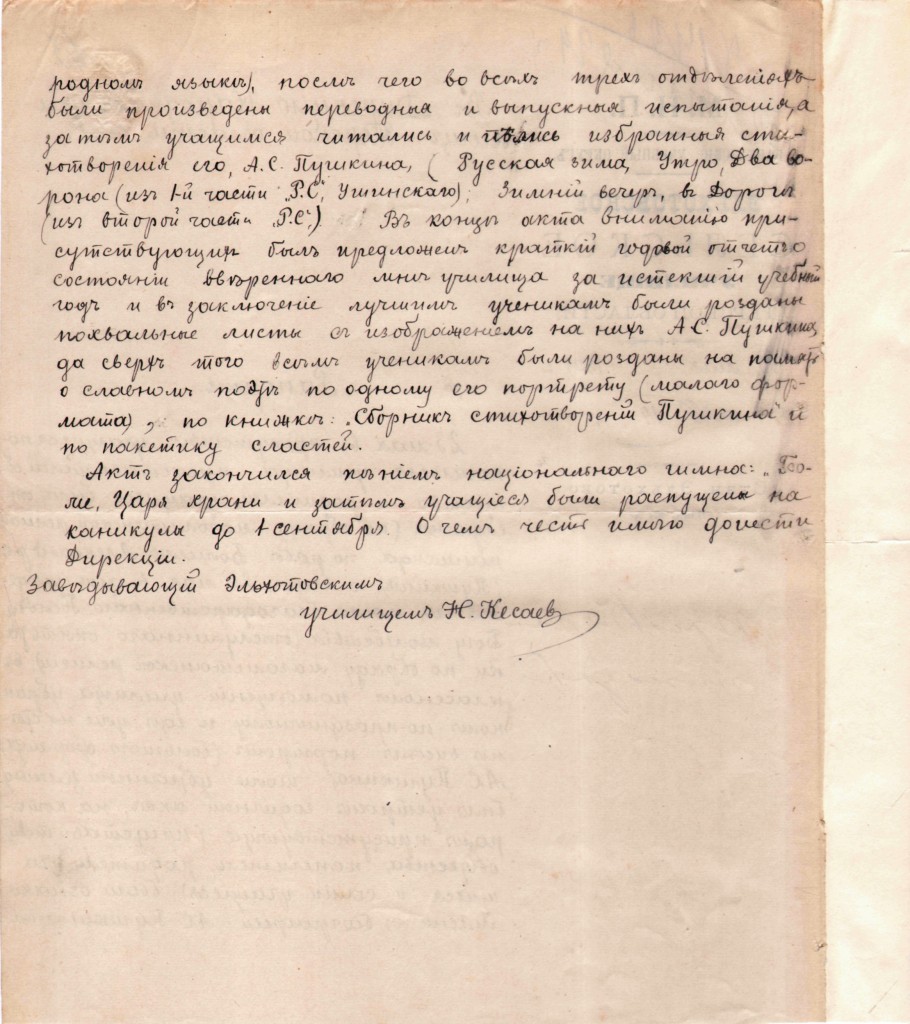 родномъ языкѣ), послѣ чего во всѣхъ трехъ отдѣленіяхъ
были произведены переводныя и выпускныя испытанія, а
затѣмъ учащимся читались и пѣлись избранныя сти-
хотворенія его, А.С. Пушкина, (Русская зима, Утро, Два во-
рона (изъ 1-й части "Р.С", Ушинскаго); Зимній вечеръ, въ Дорогѣ
(изъ второй части "Р.С".) Въ концѣ акта вниманію при-
сутствующихъ былъ предложенъ краткій годовой отчетъ о
состояніи ввѣреннаго мнѣ училища за истекшій учебный
годъ и въ заключеніе лучшимъ ученикамъ были розданы
похвальные листы съ изображеніемъ на нихъ А.С. Пушкина,
да сверхъ того всѣмъ ученикамъ были розданы на память
о славномъ поэтѣ по одному его портрету (малаго фор-
мата), по книжкѣ: "Сборникъ стихотвореній Пушкина" и
по пакетику сластей.
Актъ закончился пѣніемъ національнаго гимна: "Бо-
же, Царя храни и затѣмъ учащіеся были распущены на
каникулы до 1 сентября. О чемъ честь имѣю донести
Дирекціи.
Завѣдывающій Эльхотовскимъ
училищемъ Н. Кесаевъ